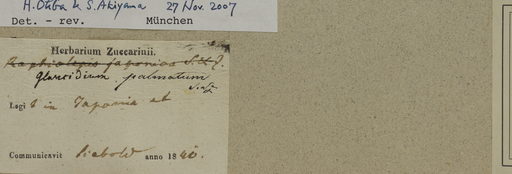 H. Ohba & S. Akiyama 27 Nov. 2007
Det. - rev. München
Herbarium Zuccarinii.
Raphiolepis japonica S. & Z.
Glaucidium palmatum
S. et Z.
Legi in Japonia et
Communicavit Siebold anno 1840.